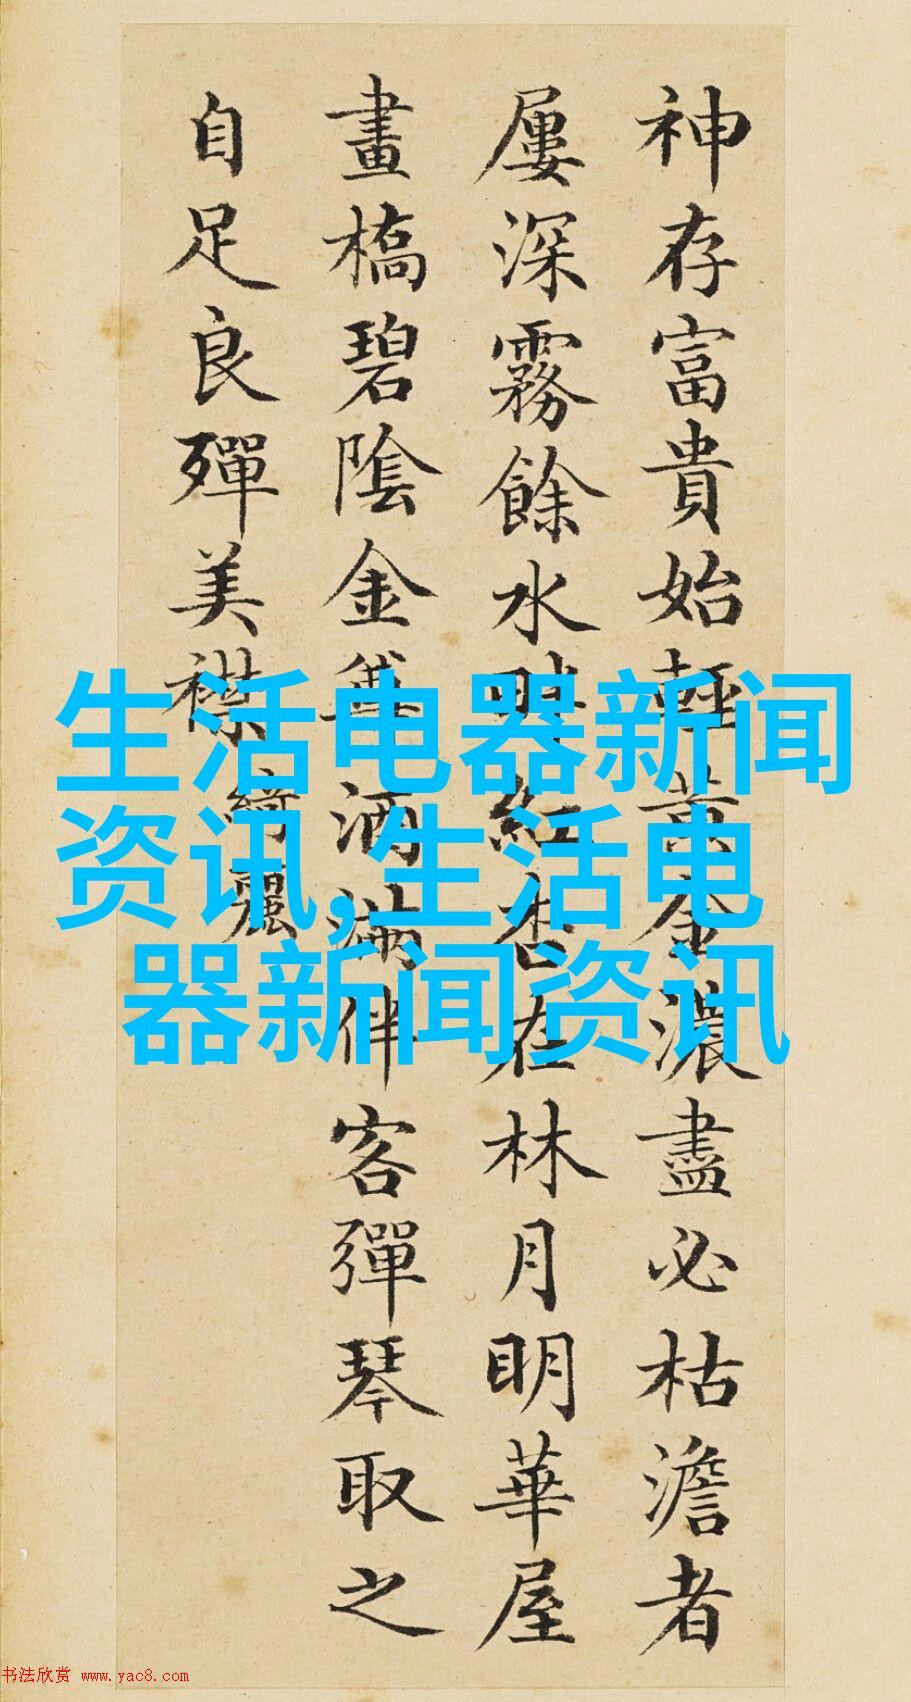 神存富貴始輕黃金濃盡必枯澹者
屢深霧餘水畔紅杏在林月明華屋
畫橋碧陰金尊酒滿伴客彈琴取之
自足良殫美襟
綺麗
生活电器新闻
资讯,生活电
器新闻资讯
书法欣赏 www.yac8.com